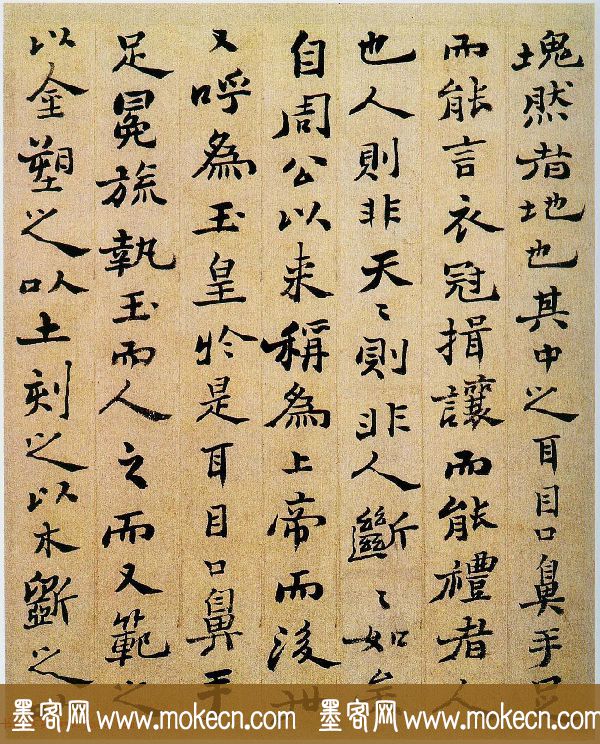 塊然者地也其中之耳目口鼻手足
而能言衣冠揖讓而能禮者人
也人則非天〻則非人斷〻如
自周公以来稱為上帝而後世
又呼為玉皇於是耳目口鼻手
足冕旒執玉而人之而又範之
以金塑之以土刻之以木斲之
墨客网 www.mokecn.com 墨客网 www.mokecn.com